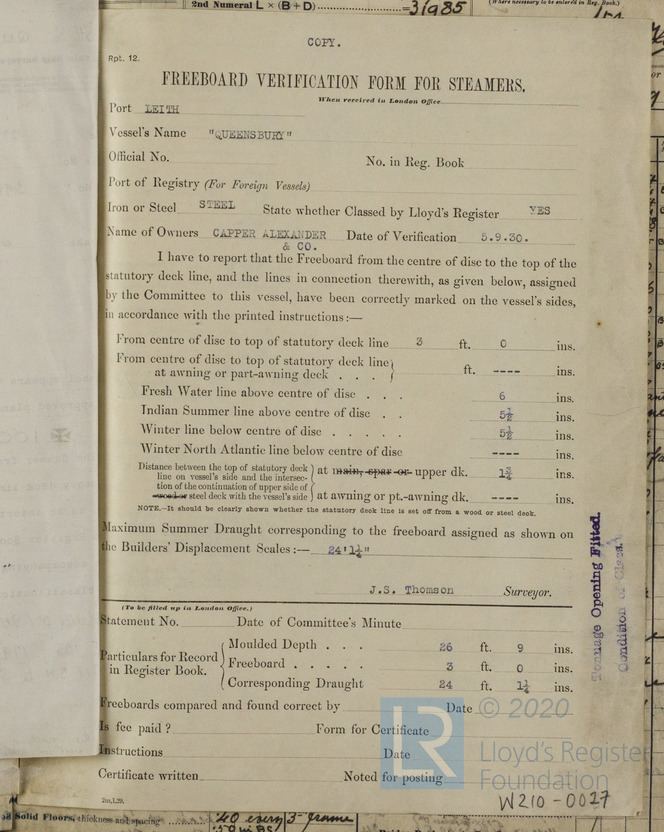 2nd Numeral L × (B + D) = 31985
(Where necessary to be entered in Reg. Book.)
COPY.
Rpt. 12.
FREEBOARD VERIFICATION FORM FOR STEAMERS.
When received in London Office
Port LEITH
Vessel's Name "QUEENSBURY"
Official No. No. in Reg. Book
Port of Registry (For Foreign Vessels)
Iron or Steel STEEL State whether Classed by Lloyd's Register YES
Name of Owners CAPPER ALEXANDER & CO. Date of Verification 5.9.30.
I have to report that the Freeboard from the centre of disc to the top of the
statutory deck line, and the lines in connection therewith, as given below, assigned
by the Committee to this vessel, have been correctly marked on the vessel's sides,
in accordance with the printed instructions:—
From centre of disc to top of statutory deck line 3 ft. 0 ins.
From centre of disc to top of statutory deck line
at awning or part-awning deck . . . ft. ---- ins.
Fresh Water line above centre of disc . . . 6 ins.
Indian Summer line above centre of disc . . 5½ ins.
Winter line below centre of disc . . . . . 5½ ins.
Winter North Atlantic line below centre of disc ---- ins.
Distance between the top of statutory deck
line on vessel's side and the intersec-
tion of the continuation of upper side of
wood or steel deck with the vessel's side
at main, spar or upper dk. 1¾ ins.
at awning or pt.-awning dk. ---- ins.
NOTE.—It should be clearly shown whether the statutory deck line is set off from a wood or steel deck.
Maximum Summer Draught corresponding to the freeboard assigned as shown on
the Builders' Displacement Scales:— 24'1¼"
J.S. Thomson Surveyor.
(To be filled up in London Office.)
Statement No. Date of Committee's Minute
Particulars for Record
in Register Book.
Moulded Depth . . . 26 ft. 9 ins.
Freeboard . . . . . 3 ft. 0 ins.
Corresponding Draught 24 ft. 1¼ ins.
Freeboards compared and found correct by Date
Is fee paid ? Form for Certificate
Instructions Date
Certificate written Noted for posting
2m,1.29.
Tonnage Opening Fitted.
Condition of Class.
© 2020
LR
Lloyd's Register
Foundation
W210-0027
Solid Floors, thickness and spacing .40 every 3rd frame